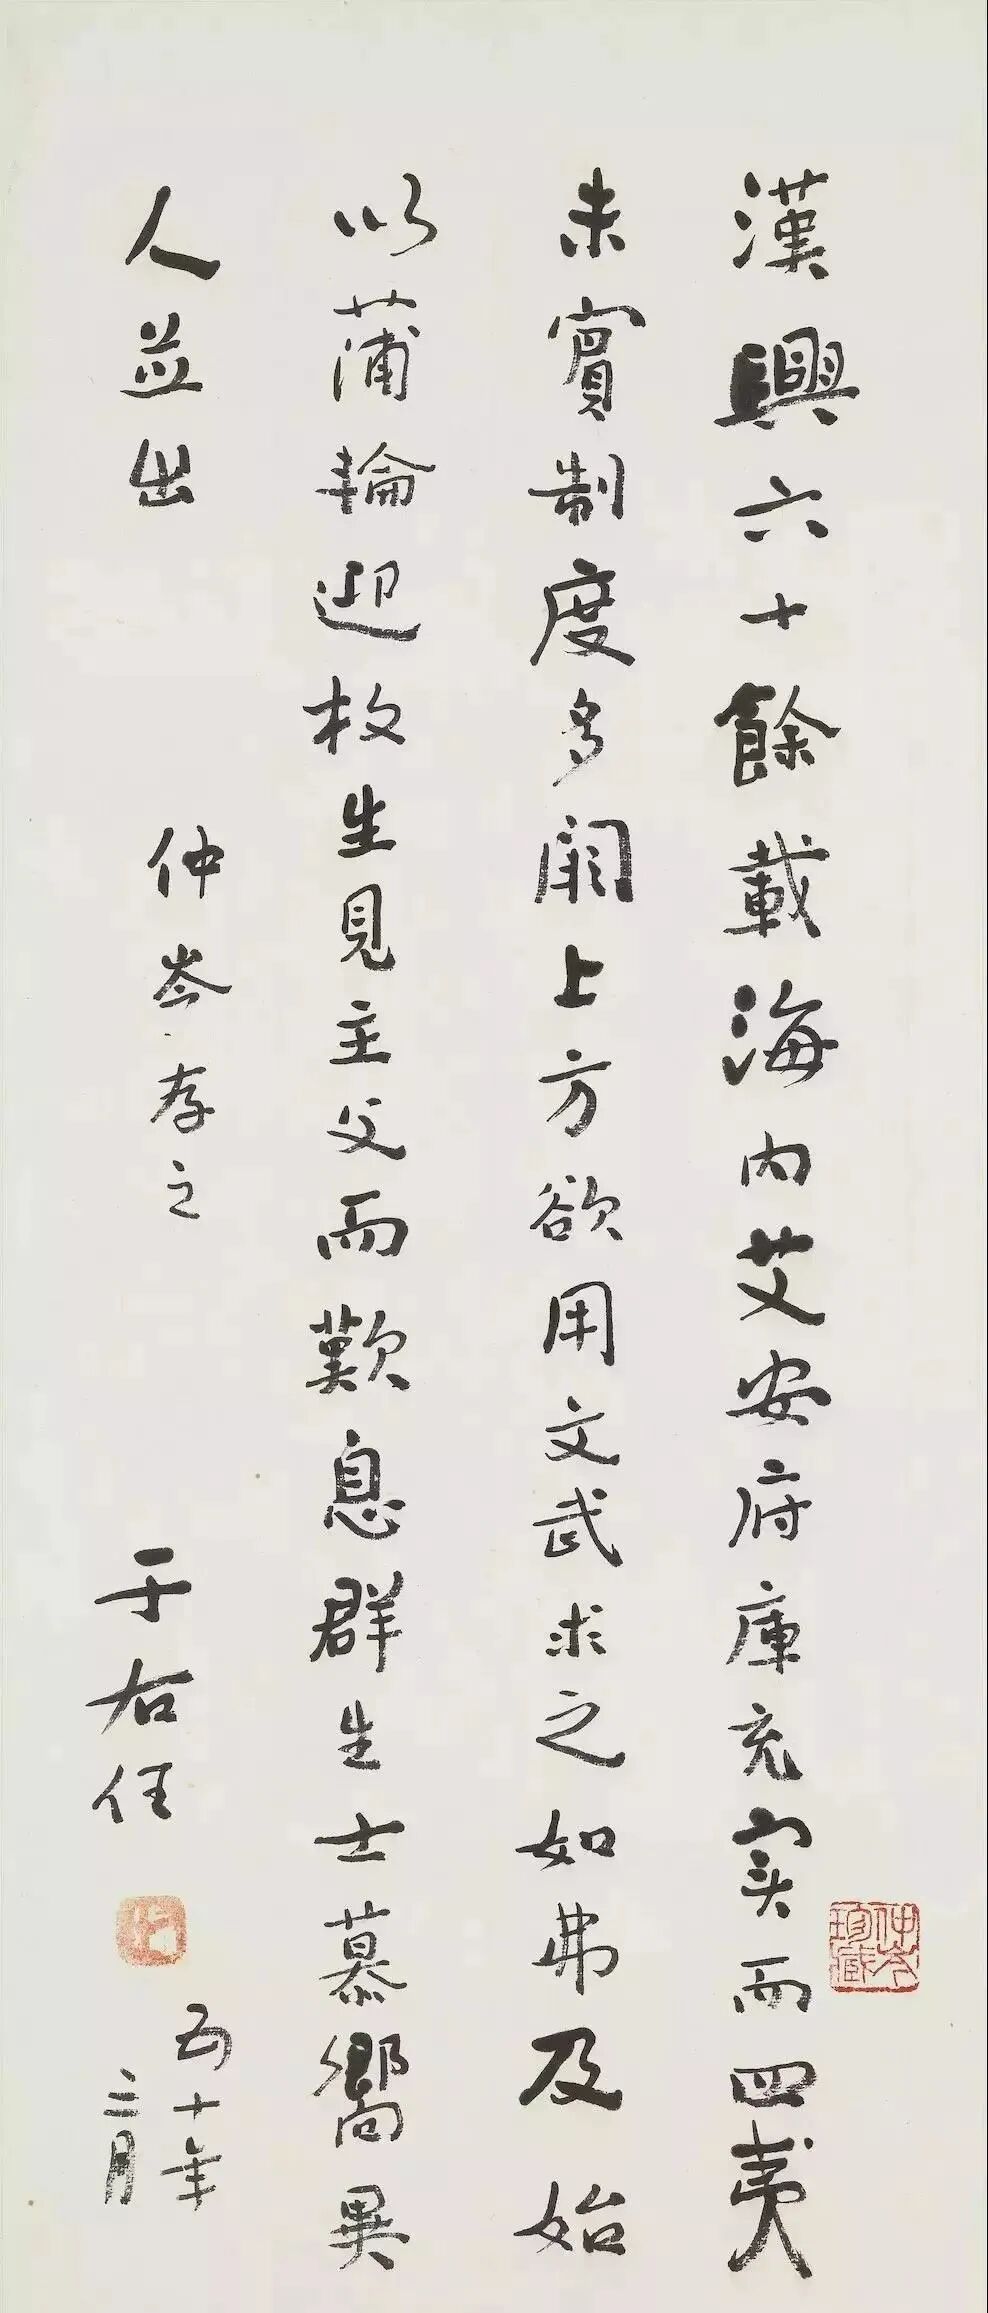 漢興六十餘載海内艾安府庫充实而四夷
未賓制度多闕上方欲用文武求之如弗及始
以蒲輪迎枚生見主父而歎息群生士慕嚮異
人並出
仲岑存之
于右任
五十年
二月
仲岑珍藏